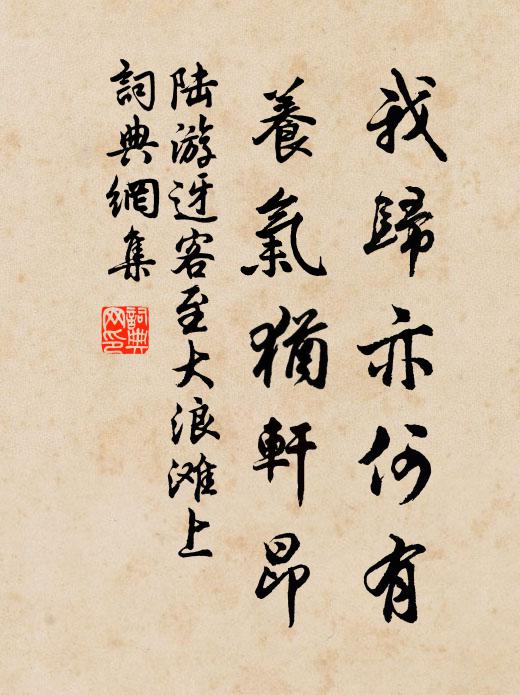 我歸亦何有
養氣猶軒昂
陆游迓客至大浪滩上
詞典網集
詞典
网印